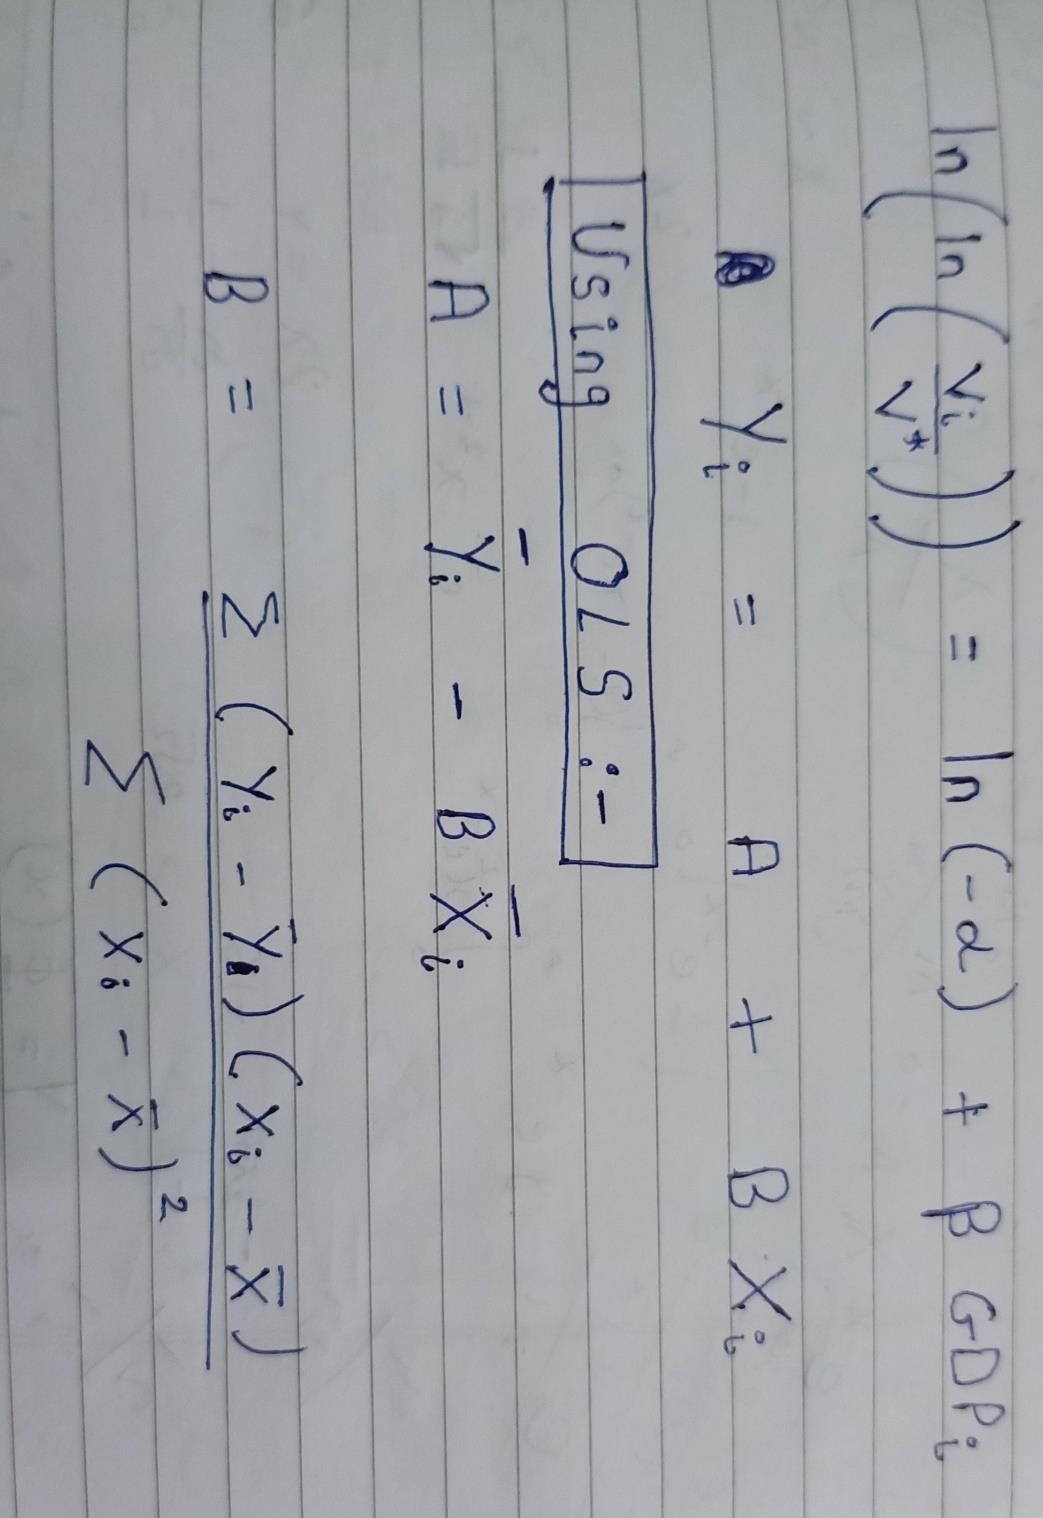 ln(ln(Vi/V*)) = ln(-α) + β GDPi
Yi = A + B Xi
Using OLS :-
A = Ȳi - B X̄i
B = Σ(Yi - Ȳi)(Xi - X̄) / Σ(Xi - X̄)²